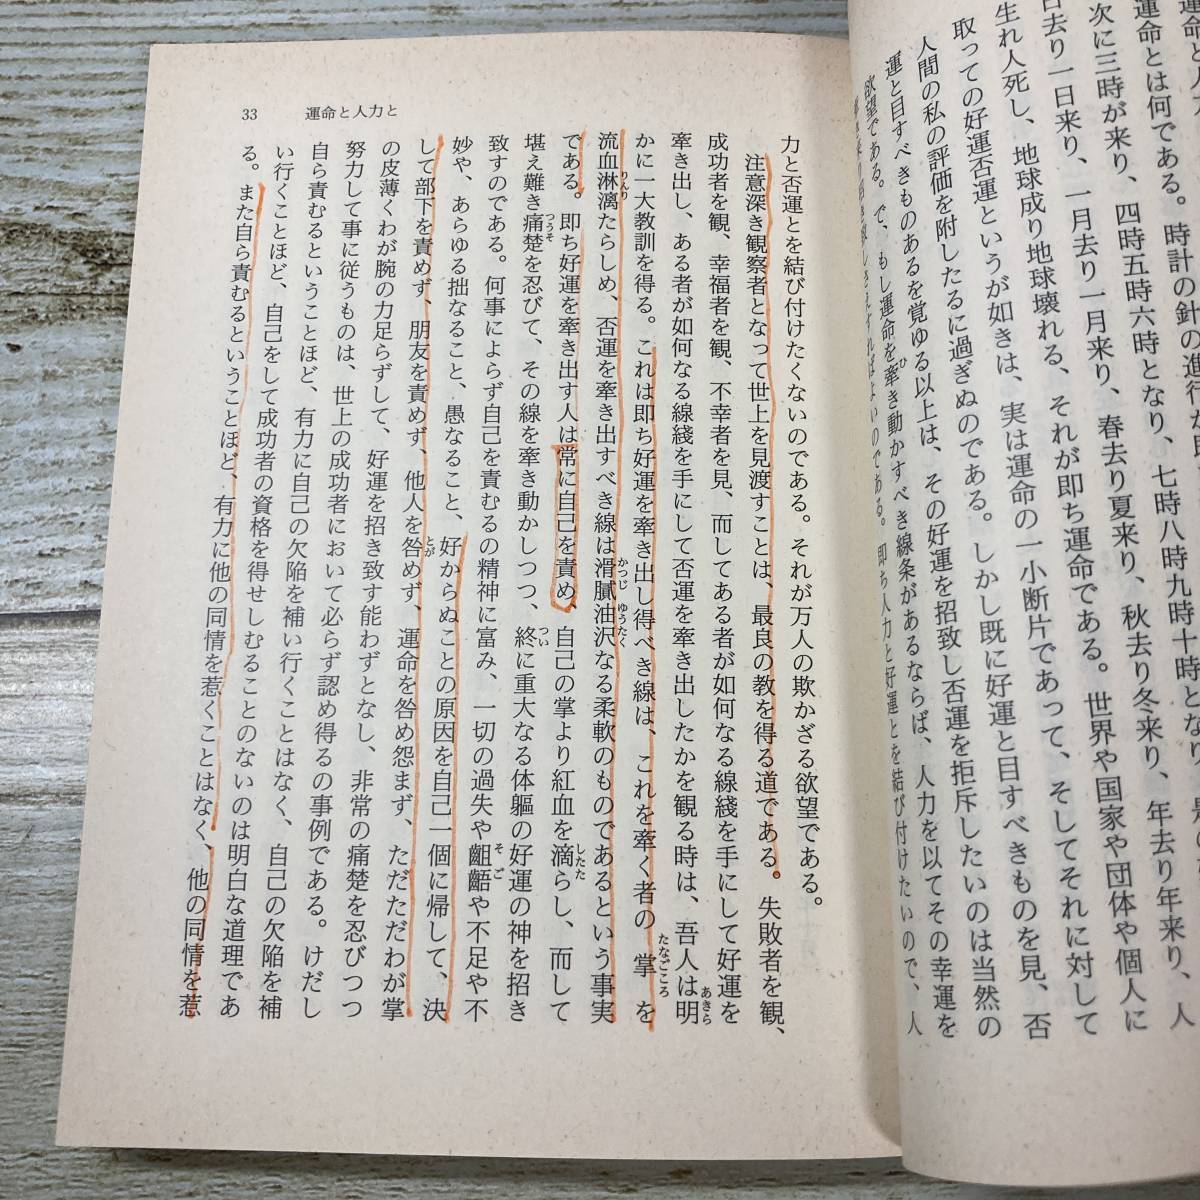 運命とは何である。時計の針の進行が即
次に三時が来り、四時五時六時となり、七時八時九時十時となり
日去り一日来り、一月去り一月来り、春去り夏来り、秋去り冬来り、年去り年来り、人
生れ人死し、地球成り地球壊れる、それが即ち運命である。世界や国家や団体や個人に
取っての好運否運というが如きは、実は運命の一小断片であって、そしてそれに対して
人間の私の評価を附したるに過ぎぬのである。しかし既に好運と目すべきものを見、否
運と目すべきものあるを覚ゆる以上は、その好運を招致し否運を拒斥したいのは当然の
欲望である。で、もし運命を牽き動かすべき線条があるならば、人力を以てその幸運を
ひ
即ち人力と好運とを結び付けたいので、人
33 運命と人力と
力と否運とを結び付けたくないのである。それが万人の欺かざる欲望である。
注意深き観察者となって世上を見渡すことは、最良の教を得る道である。失敗者を観、
成功者を観、幸福者を観、不幸者を見、而してある者が如何なる線綫を手にして好運を
牽き出し、ある者が如何なる線綫を手にして否運を牽き出したかを観る時は、吾人は明
あきら
かに一大教訓を得る。これは即ち好運を牽き出し得べき線は、これを牽く者の掌を
たなごころ
流血淋漓たらしめ、否運を牽き出すべき線は滑膩油沢なる柔軟のものであるという事実
りんり かつじ ゆうたく
である。即ち好運を牽き出す人は常に自己を責め、自己の掌より紅血を滴らし、而して
したた
堪え難き痛楚を忍びて、その線を牽き動かしつつ、終に重大なる体軀の好運の神を招き
つうそ つい
致すのである。何事によらず自己を責むるの精神に富み、一切の過失や齟齬や不足や不
そご
妙や、あらゆる拙なること、愚なること、好からぬことの原因を自己一個に帰して、決
して部下を責めず、朋友を責めず、他人を咎めず、運命を咎め怨まず、ただただわが掌
とが
の皮薄くわが腕の力足らずして、好運を招き致す能わずとなし、非常の痛楚を忍びつつ
努力して事に従うものは、世上の成功者において必らず認め得るの事例である。けだし
自ら責むるということほど、有力に自己の欠陥を補い行くことはなく、自己の欠陥を補
い行くことほど、自己をして成功者の資格を得せしむることのないのは明白な道理であ
る。また自ら責むるということほど、有力に他の同情を惹くことはなく、他の同情を惹